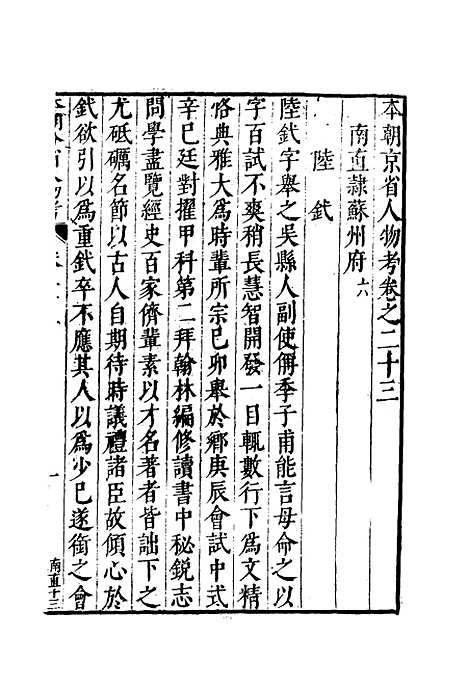 本朝京省人物考卷之二十三
南直隷蘇州府六
陸釴
陸釴字舉之吳縣人副使偁季子甫能言母命之以
字百試不爽稍長慧智開發一目輒數行下爲文精
恪典雅大爲時輩所宗巳卯舉於鄉庚辰會試中式
辛巳廷對擢甲科第二拜翰林編修讀書中秘銳志
問學盡覽經史百家儕輩素以才名著者皆詘下之
尤砥礪名節以古人自期待時議禮諸臣故傾心於
釴欲引以爲重釴卒不應其人以爲少巳遂銜之會
一
南直十三